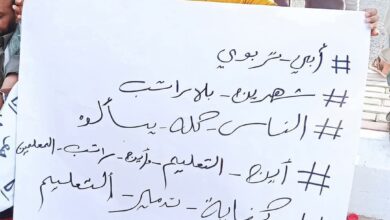 # أبي - تربوي
# شهرين - بلا راتب
# الناس - كله - يسألوه
# أين - التعليم - وأين - راتب - المعلمين
كفاية - تدمير - التعليم